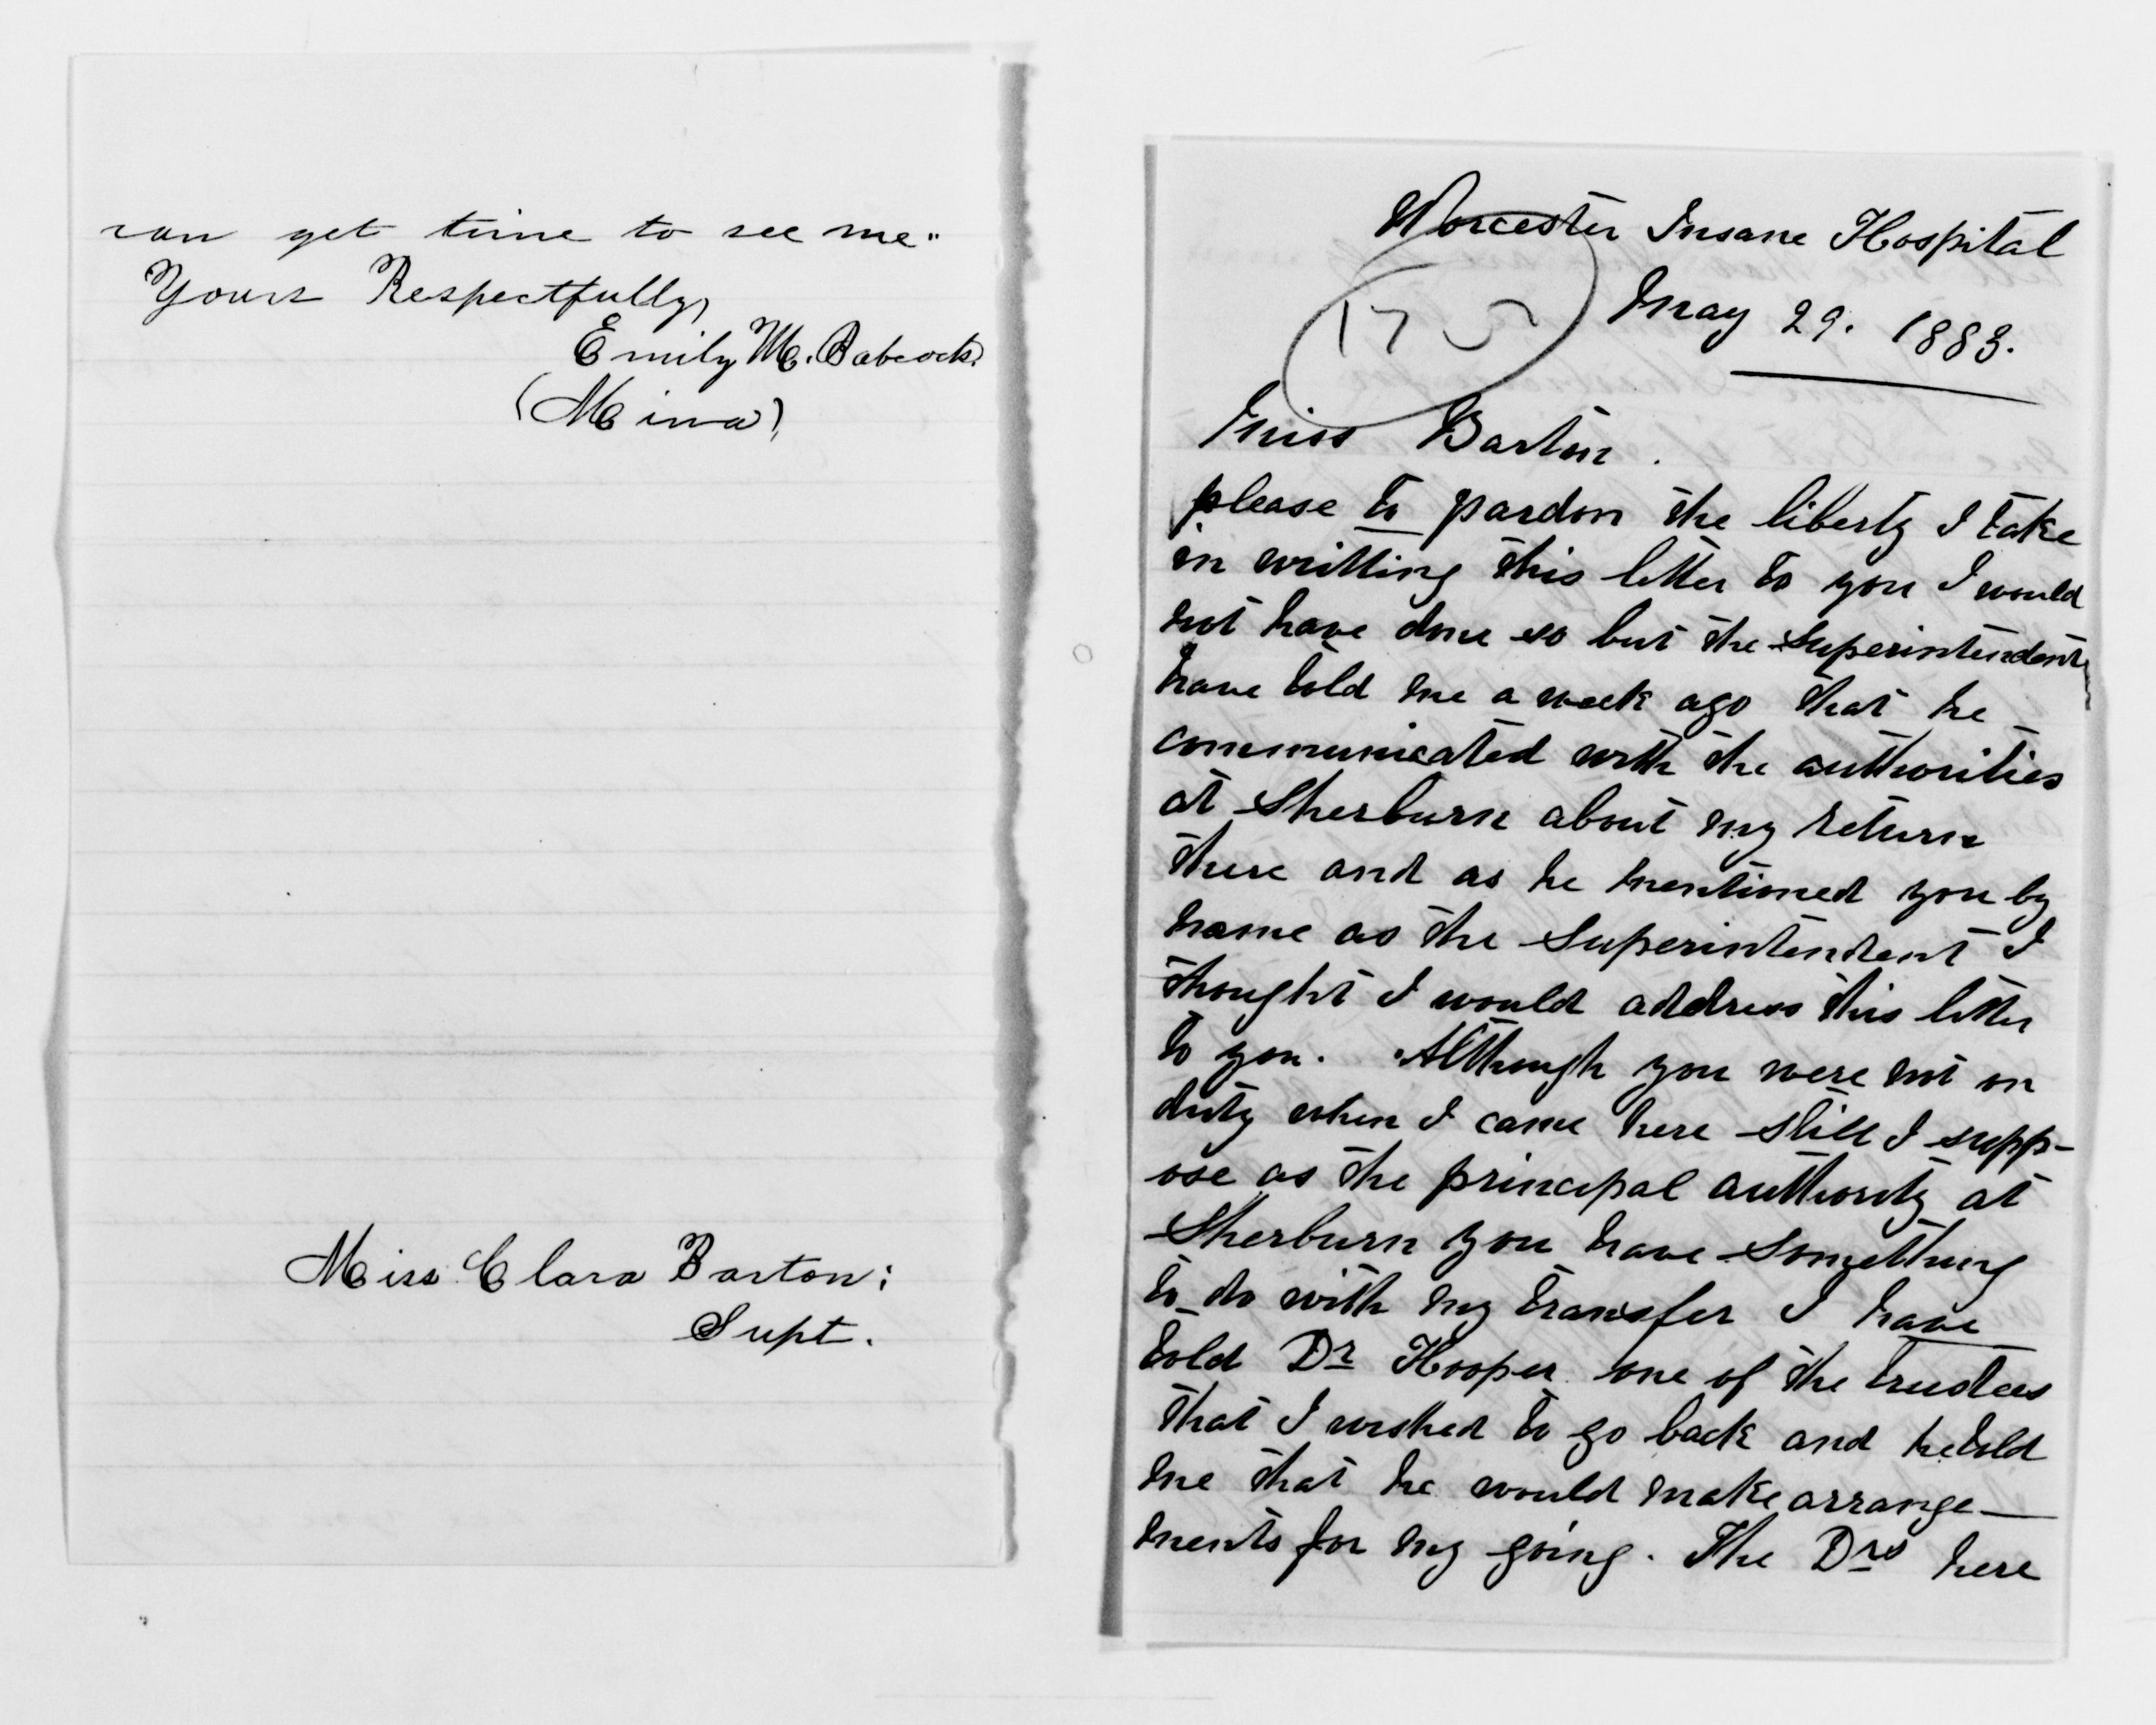 can get time to see me"
Yours Respectfully,
Emily M. Babcock.
(Mina)
Miss Clara Barton:
Supt.
Worcester Insane Hospital
May 29. 1883.
Miss Barton.
please to pardon the liberty I take
in writting this letter to you I would
not have done so but the Superintendent
have told me a week ago that he
communicated with the authorities
at Sherburn about my return
there and as he mentioned you by
name as the Superintendent I
thought I would address this letter
to you. Although you were not on
duty when I came here still I supp-
ose as the principal authority at
Sherburn you have something
to do with my transfer I have
told Dr Hooper one of the trustees
that I wished to go back and he told
me that he would make arrange-
ments for my going. The Drs here